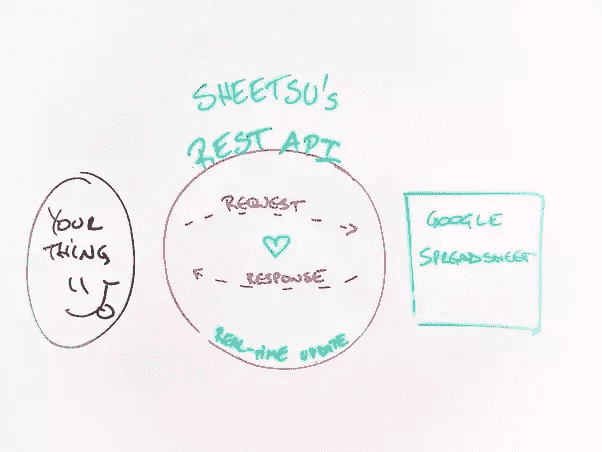 SHEETSU's
REST API
YOUR
THING
REQUEST
RESPONSE
REAL-TIME UPDATE
GOOGLE
SPREADSHEET